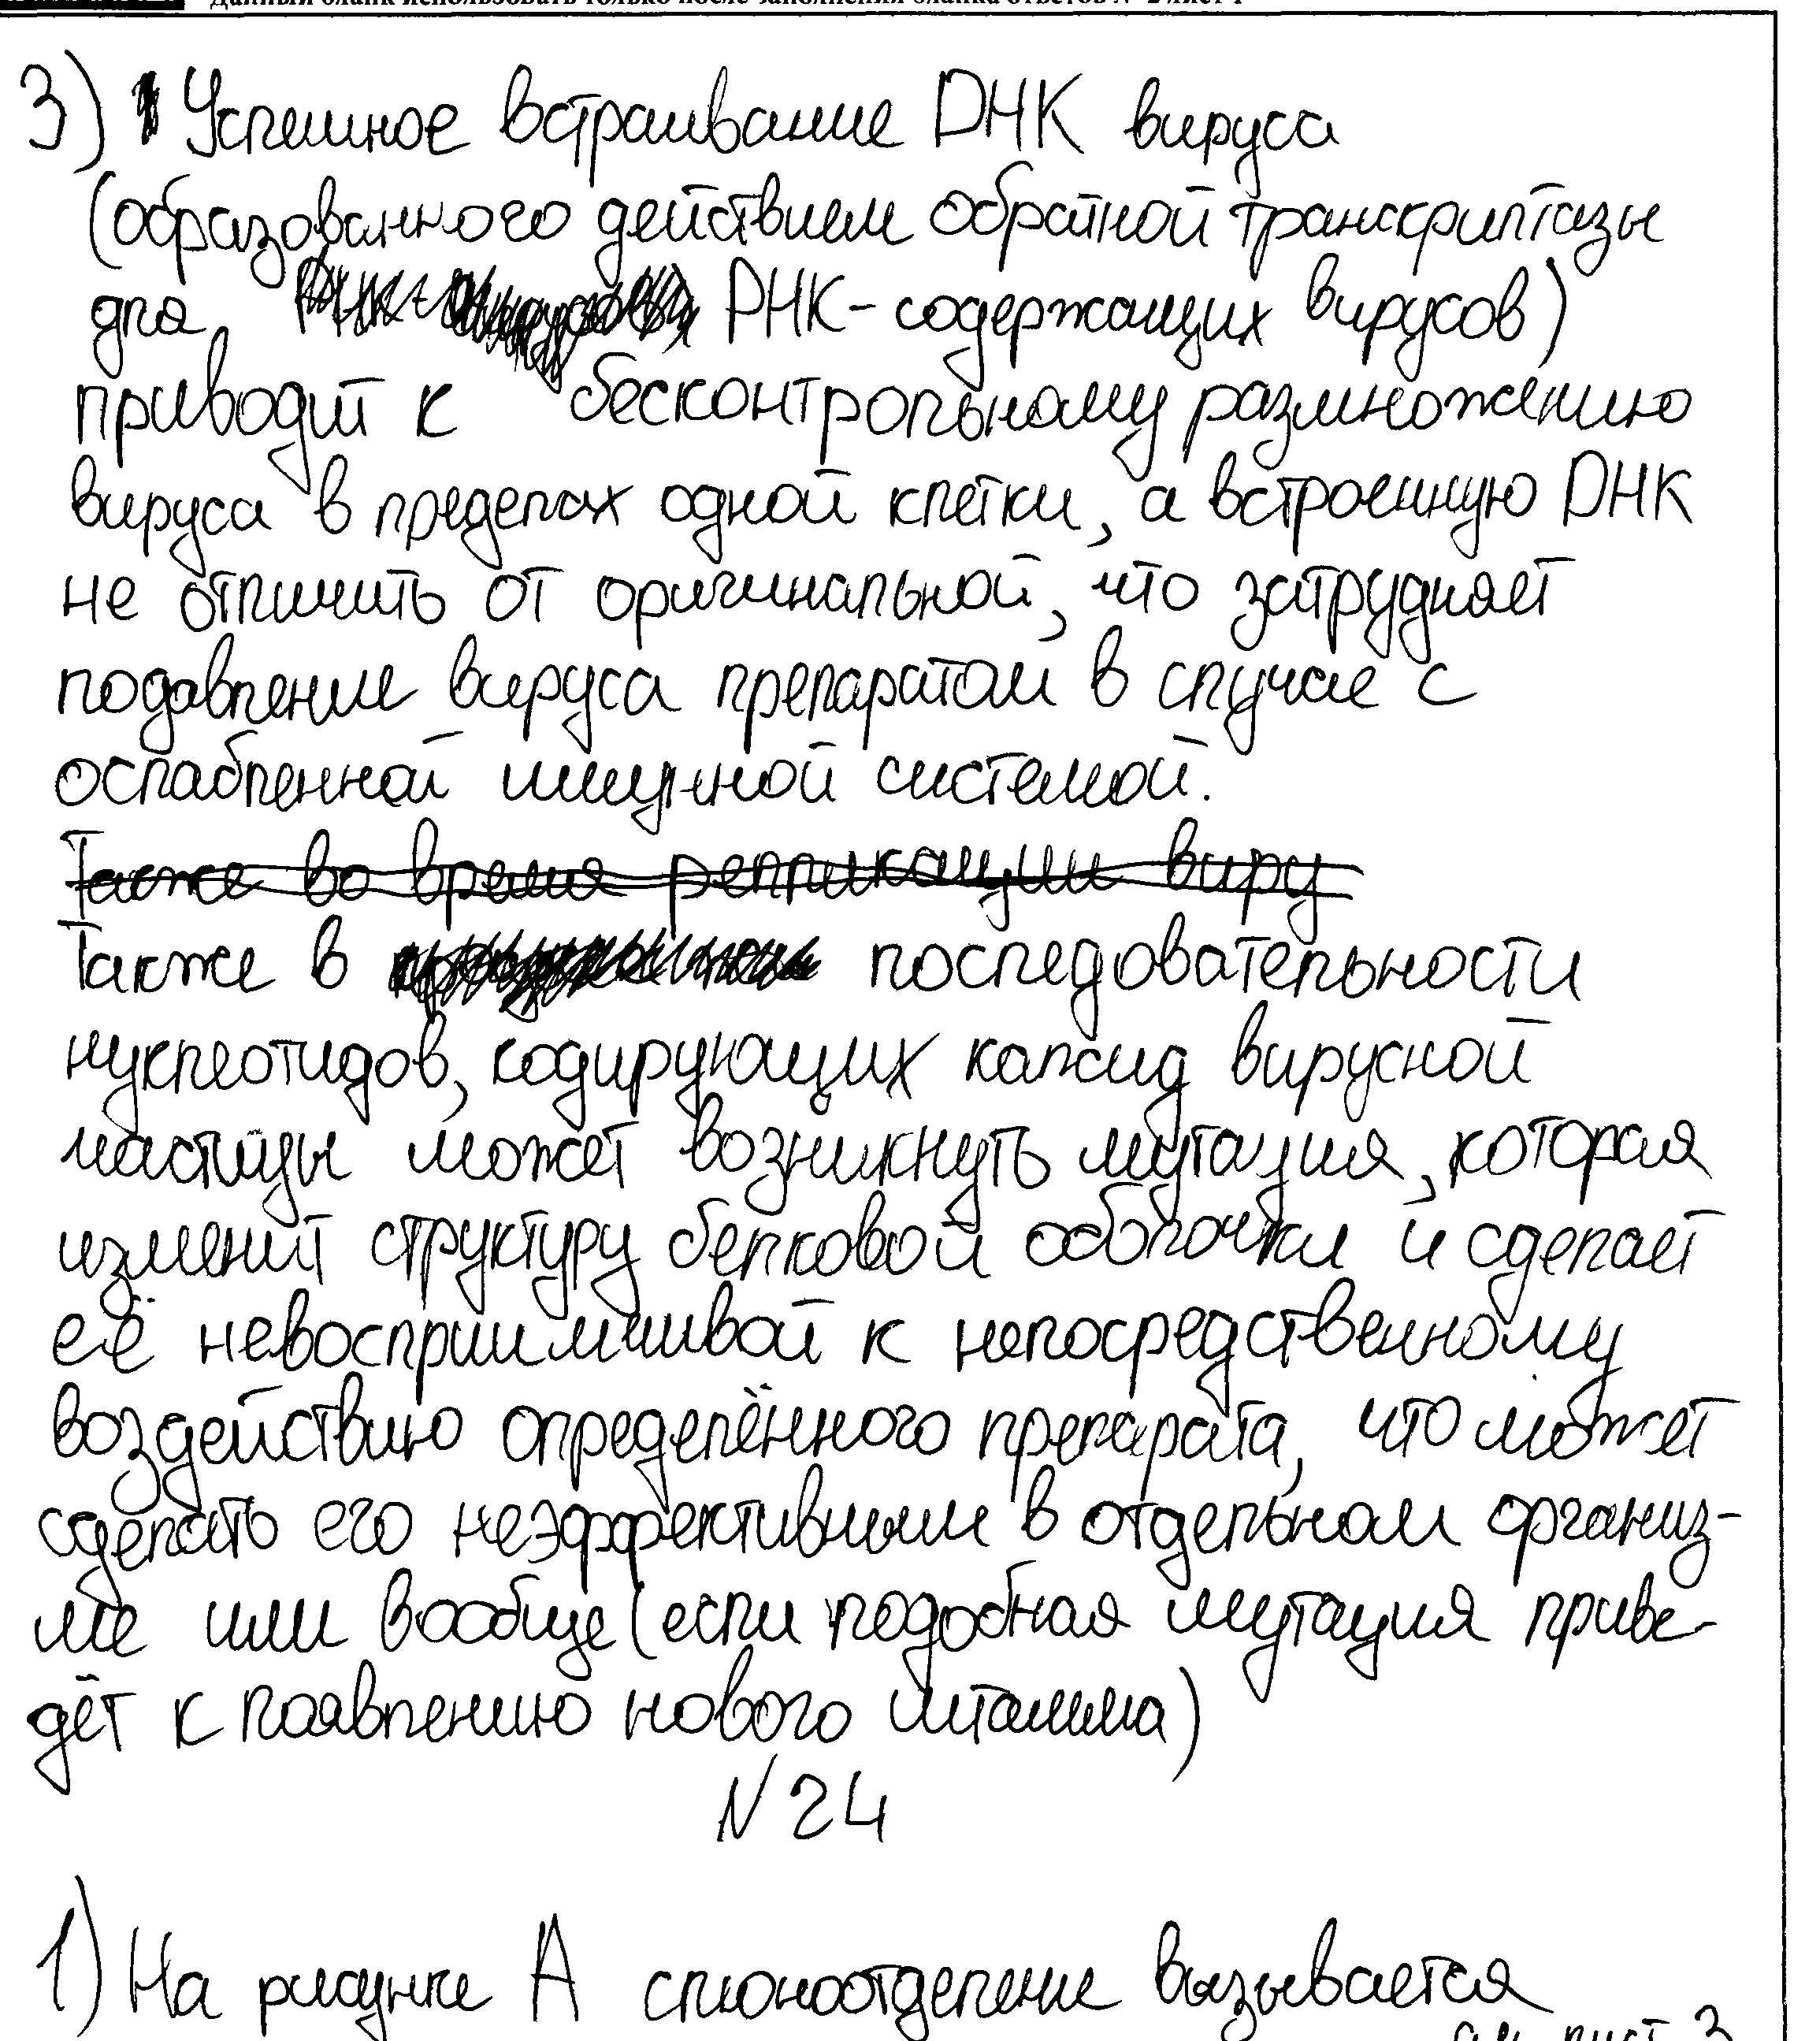 Данный бланк использовать только после заполнения бланка ответов № 2 лист 1
3) Успешное встраивание ДНК вируса
(образованного действием обратной транскриптазы
для РНК-содержащих вирусов)
приводит к бесконтрольному размножению
вируса в пределах одной клетки, а встроенную ДНК
не отличить от оригинальной, что затрудняет
подавление вируса препаратом в случае с
ослабленной иммунной системой.
Также во время репликации виру
Также в последовательности
нуклеотидов, кодирующих капсид вирусной
частицы может возникнуть мутация, которая
изменит структуру белковой оболочки и сделает
её невосприимчивой к непосредственному
воздействию определённого препарата, что может
сделать его неэффективным в отдельном организ-
ме или вообще (если подобная мутация приве-
дёт к появлению нового штамма)
№ 24
1) На рисунке А слюноотделение вызывается
лист 3